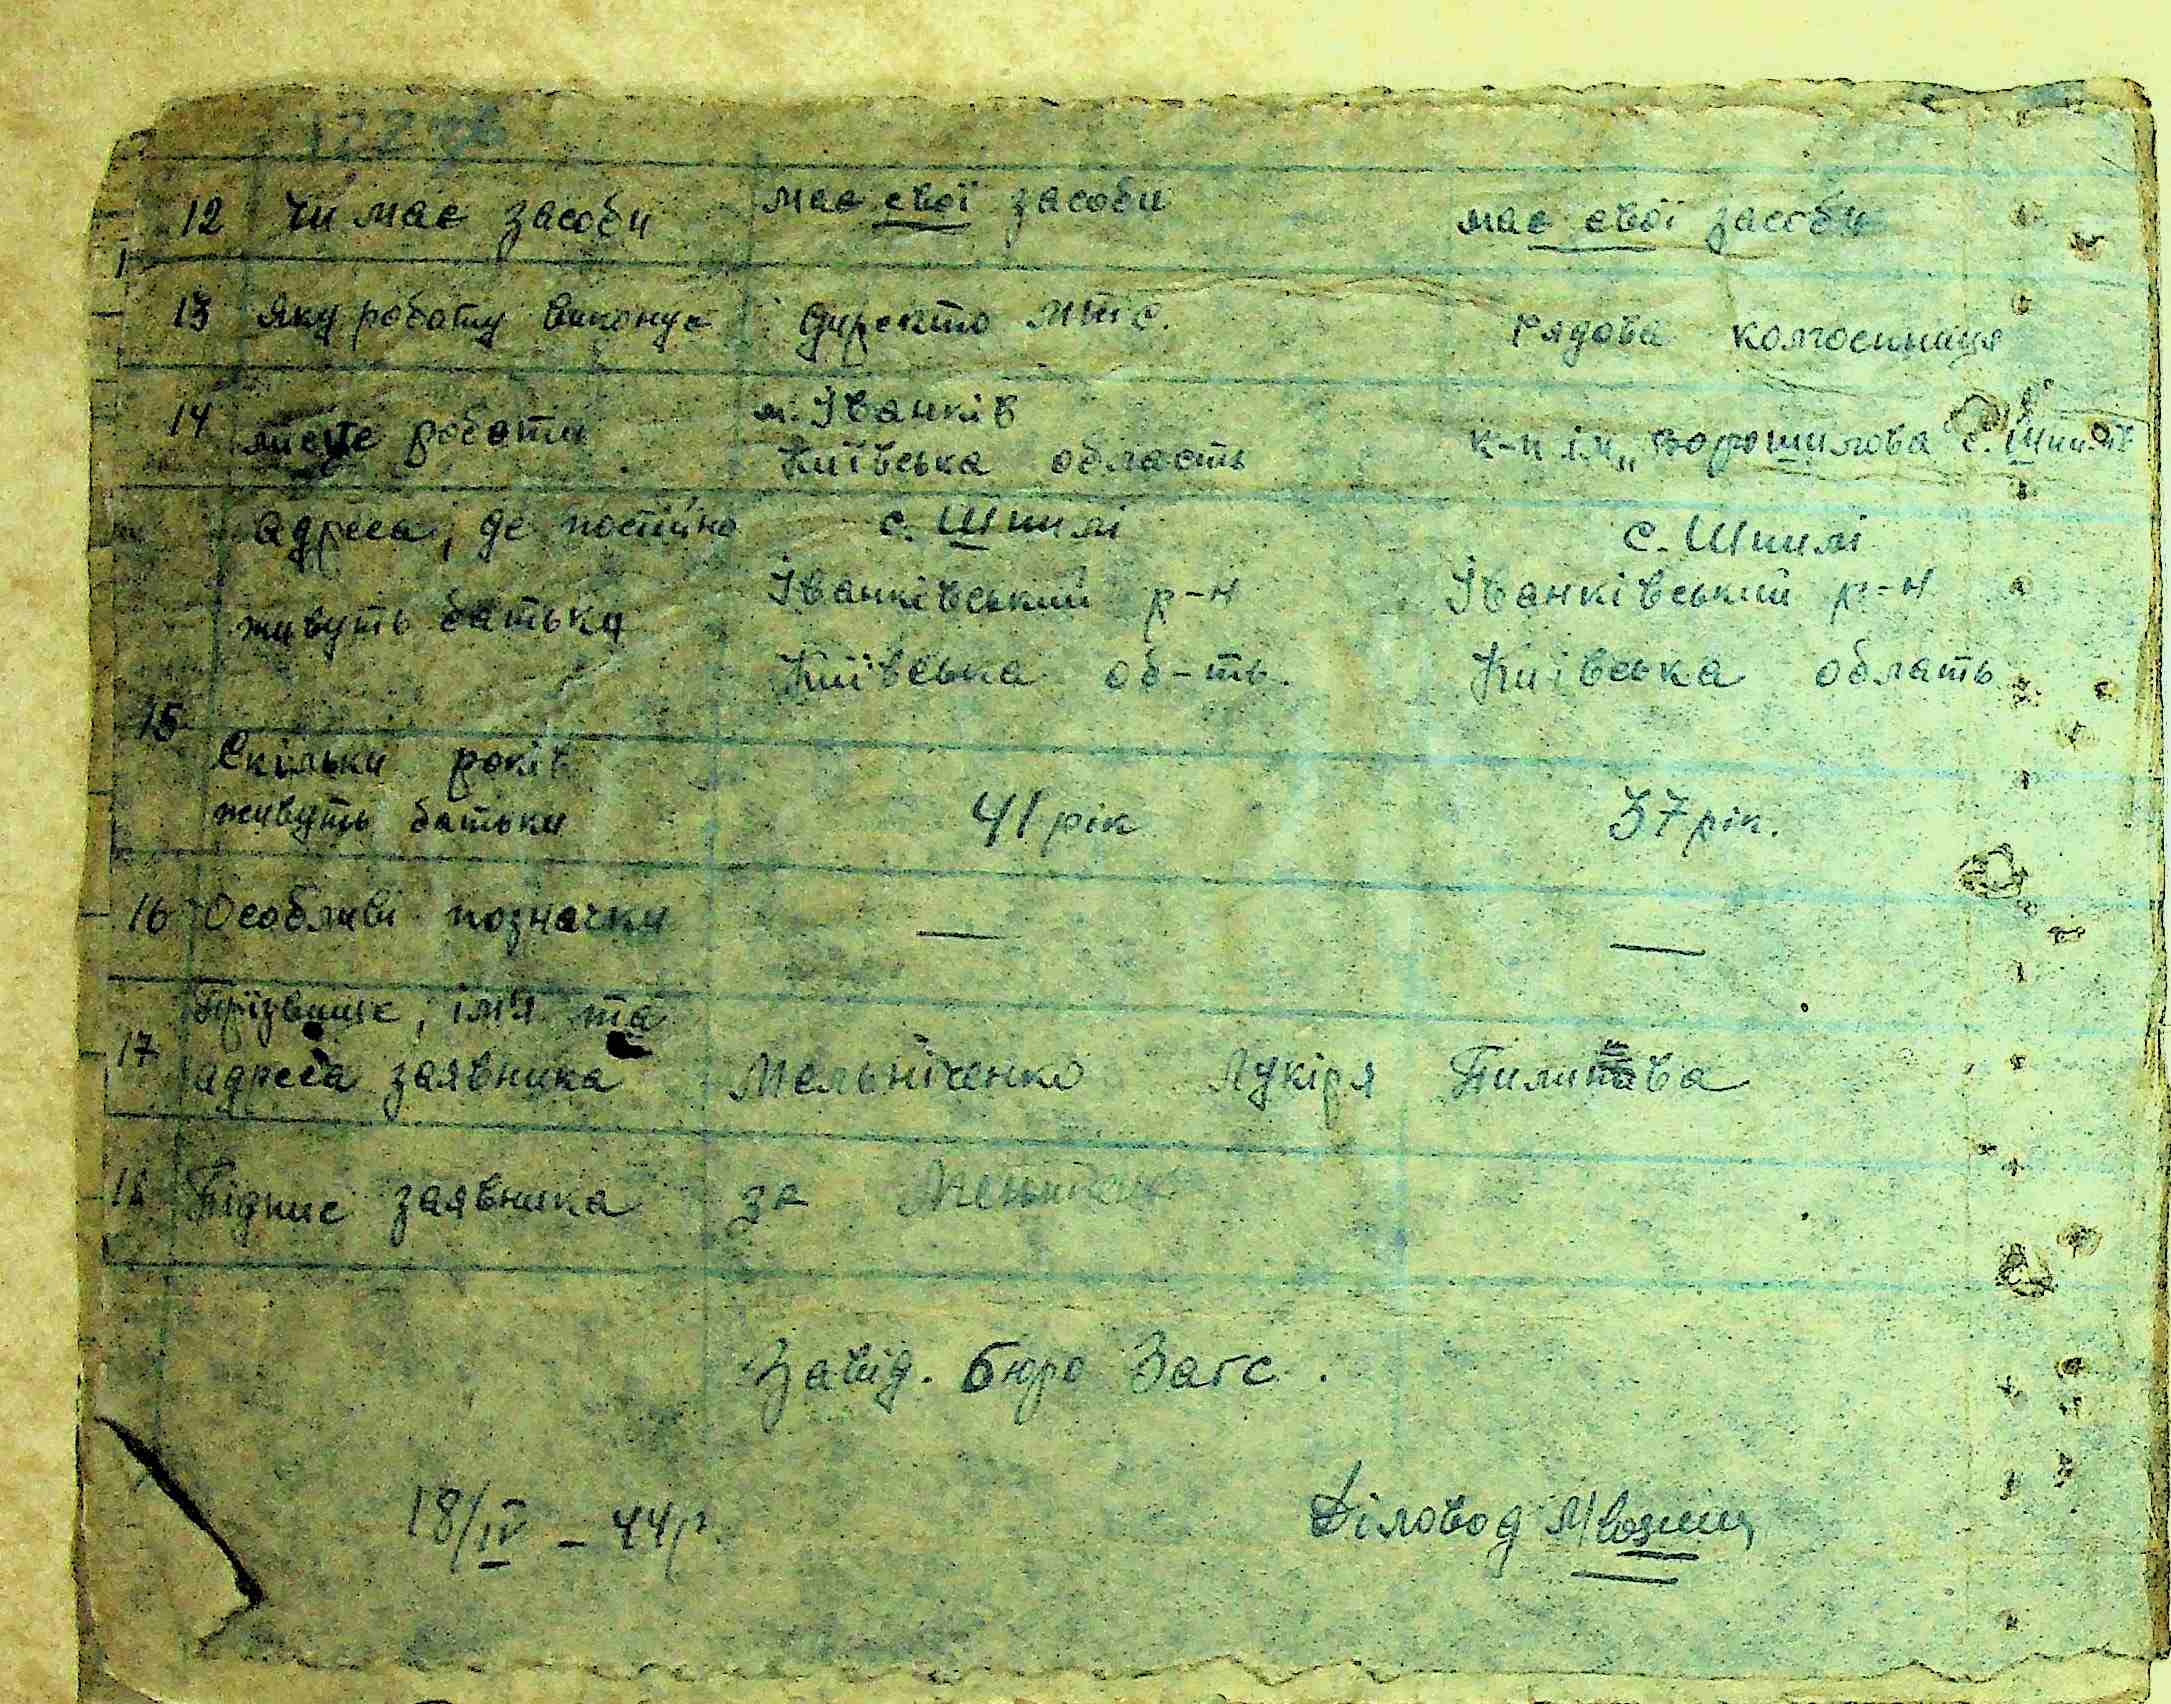 122 зв
12 Чи має засоби має свої засоби має свої засоби
13 Яку роботу виконує Директо мтс. рядова колгоспниця
14 місце роботи м. Іванків
Київська область к-п ім „Ворошилова с. Шпилі
Адреса, де постійно с. Шпилі с. Шпилі
живуть батьки Іванківський р-н Іванківський р-н
Київська об-ть. Київська облать
15
Скільки років
живуть батьки 41 рік 37 рік.
16 Особливі позначки — —
Прізвище, ім'я та
17 адреса заявника Мельніченко Лукіря
18 Підпис заявника за
Завід. бюро Загс.
18/IV – 44 р. Діловод